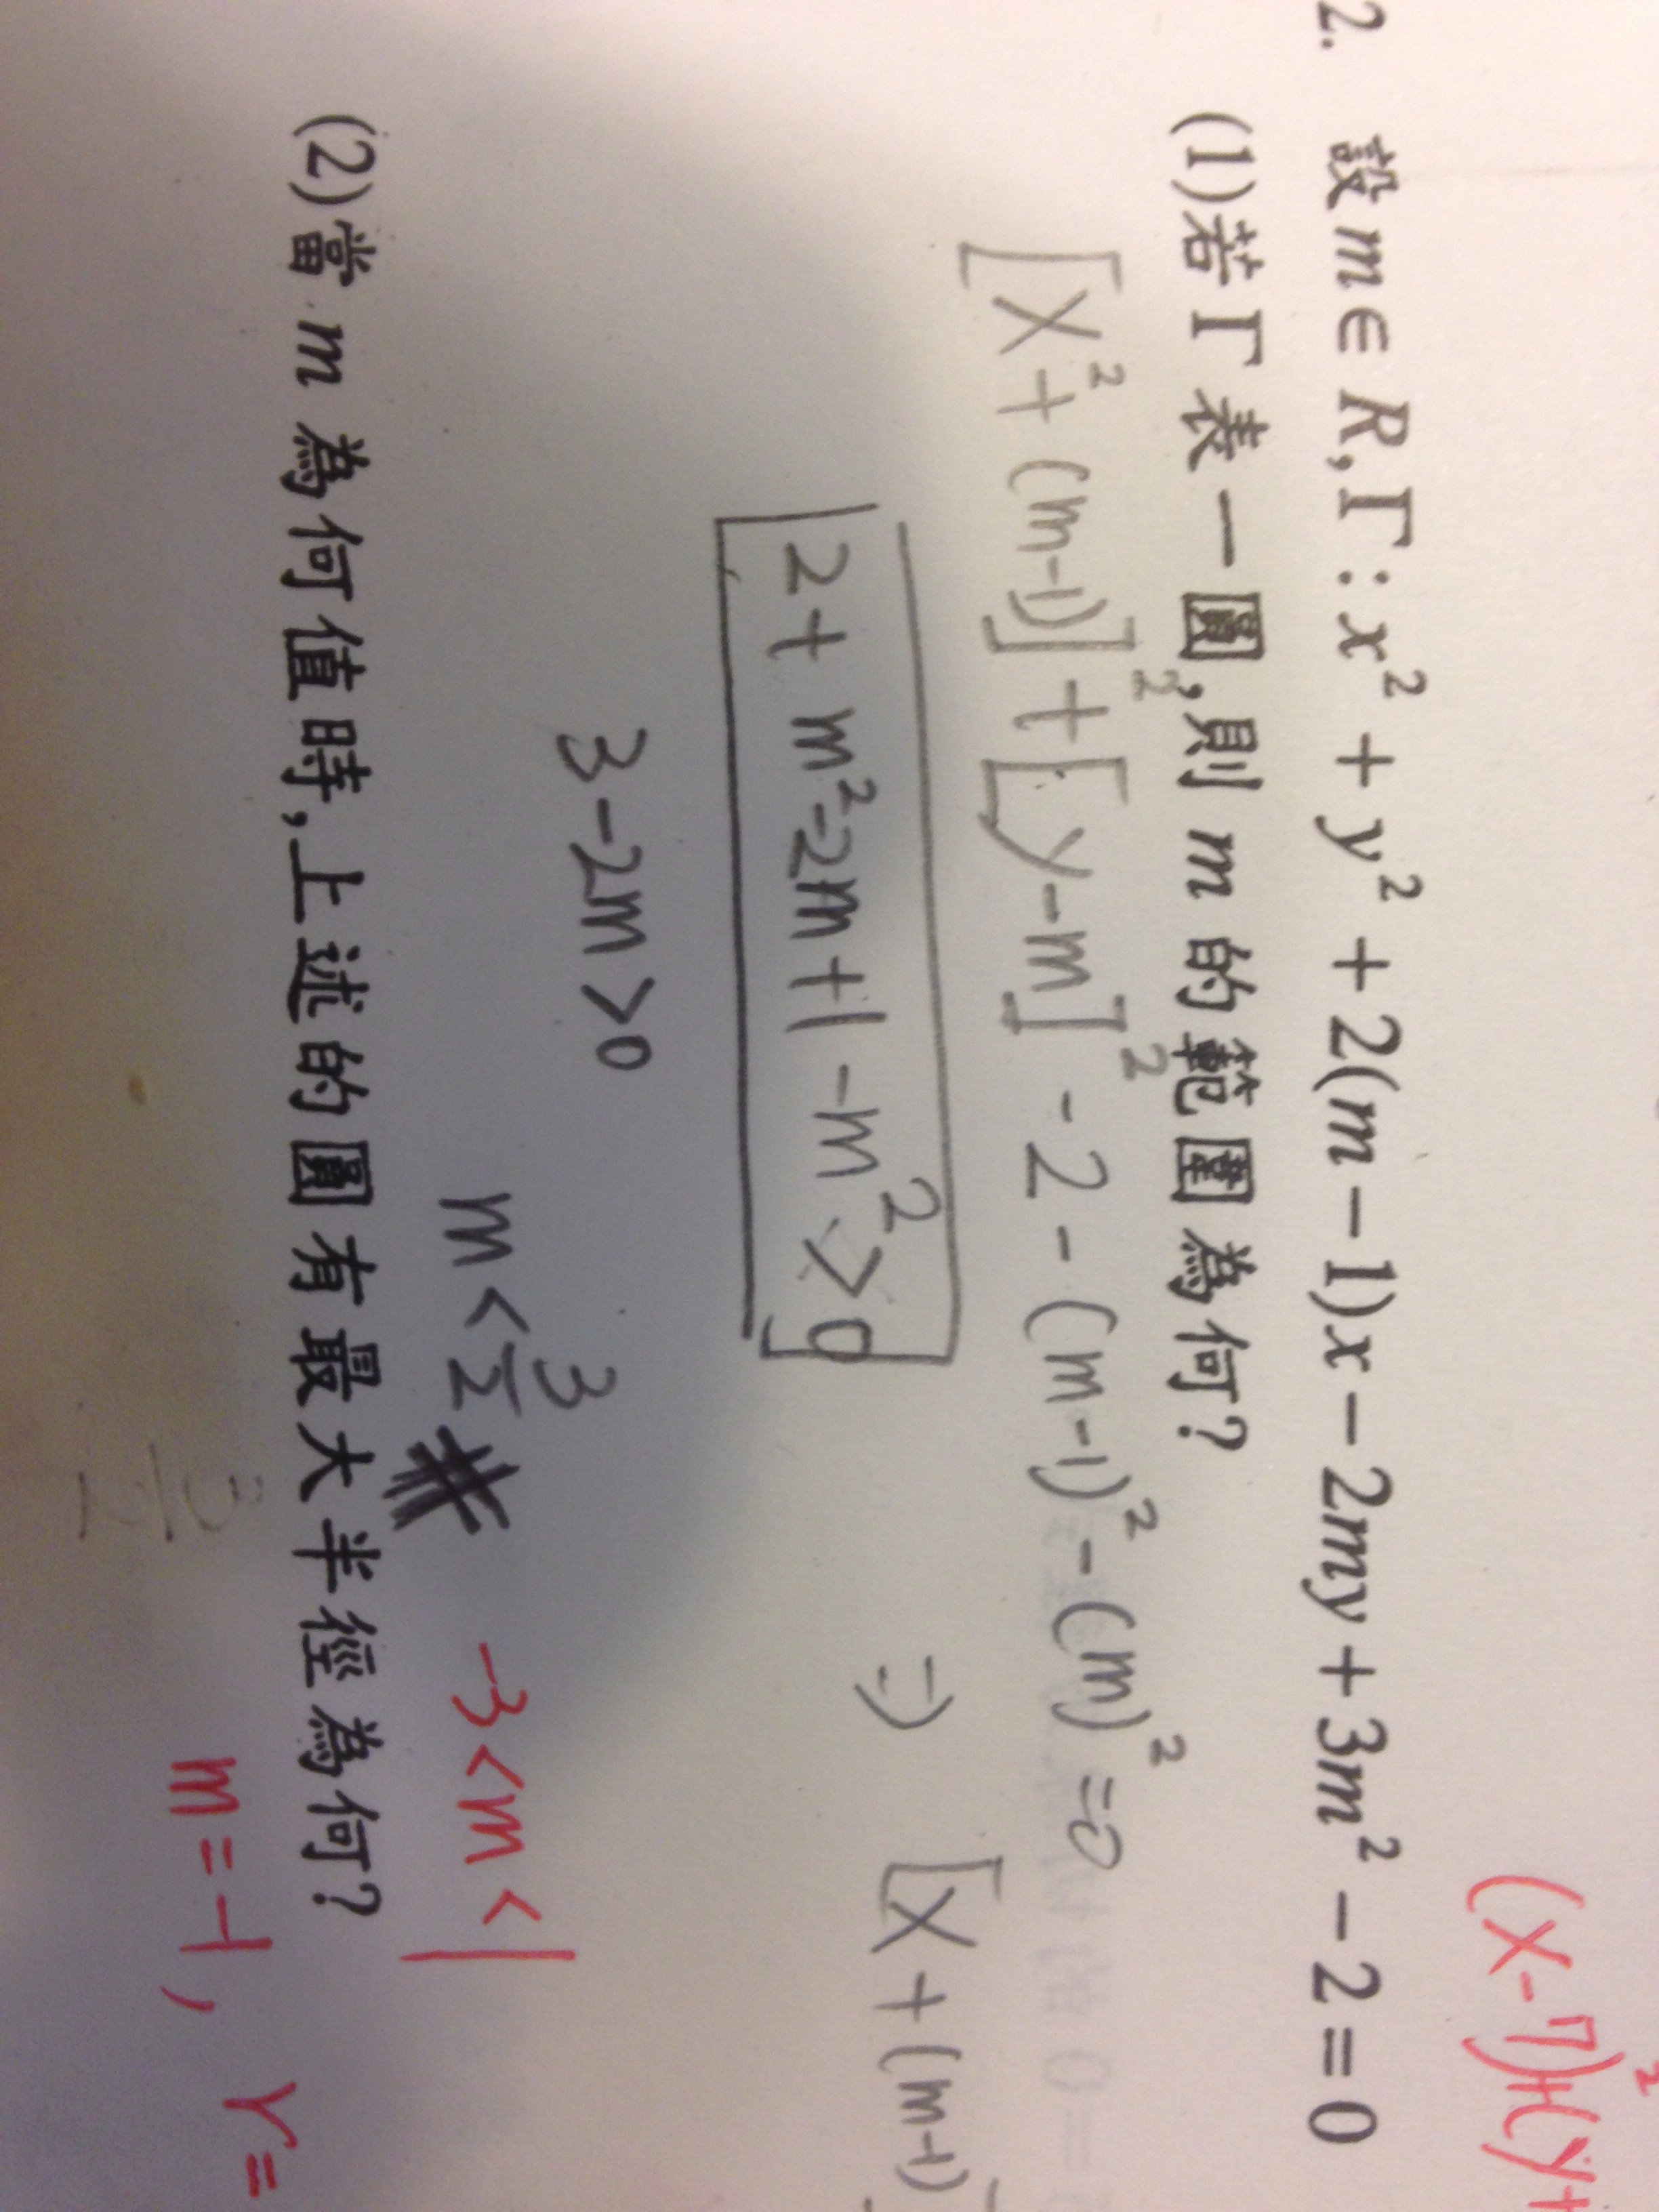 (x-7)²+(y+
2. 設 m∈R, Γ: x² + y² + 2(m-1)x - 2my + 3m² - 2 = 0
(1)若 Γ 表一圓,則 m 的範圍為何?
[x²+(m-1)]²+[y-m]²-2-(m-1)²-(m)²=0
⇒ [x+(m-1)
2+m²-2m+1-m²>0
3-2m>0
m<3/2 # -3<m<1
(2)當 m 為何值時,上述的圓有最大半徑為何?
m=-1, r=